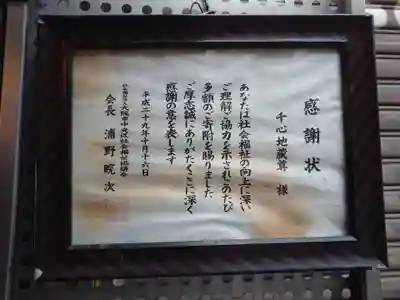 感謝状
千心地蔵尊 様
あなたは社会福祉の向上に深い
ご理解ご協力を示されこのたび
多額のご寄附を賜りました
ご厚志誠にありがたくここに深く
感謝の意を表します
平成二十九年十月十六日
社会福祉法人大阪市中央区社会福祉協議会
会長 浦野睆次